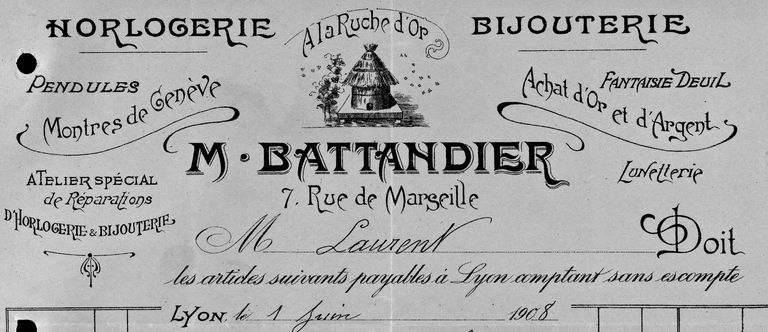 HORLOGERIE
A la Ruche d'Or
BIJOUTERIE
PENDULES
Montres de Genève
Achat d'Or et d'Argent
FANTAISIE DEUIL
M. BATTANDIER
ATELIER SPÉCIAL
de Réparations
D'HORLOGERIE & BIJOUTERIE
LUNETTERIE
7, Rue de Marseille
M Laurent Doit
les articles suivants payables à Lyon comptant sans escompte
LYON, le 1 Juin 1908